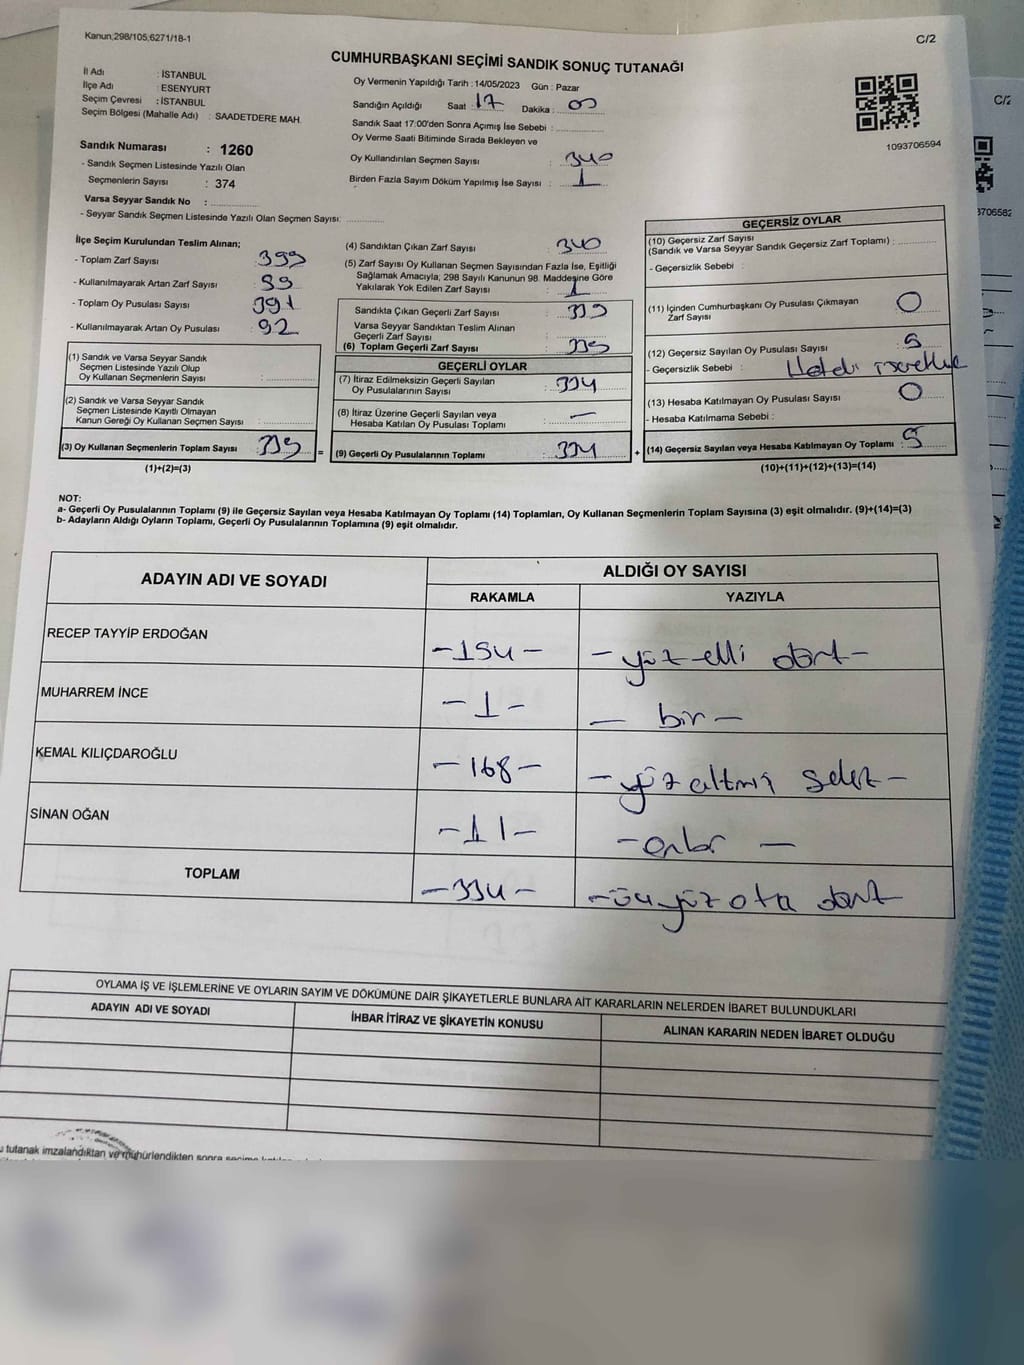 Kanun,298/105,6271/18-1
C/2
CUMHURBAŞKANI SEÇİMİ SANDIK SONUÇ TUTANAĞI
İl Adı : İSTANBUL
İlçe Adı : ESENYURT
Seçim Çevresi : İSTANBUL
Seçim Bölgesi (Mahalle Adı) : SAADETDERE MAH.
Oy Vermenin Yapıldığı Tarih : 14/05/2023 Gün : Pazar
Sandığın Açıldığı Saat : 17 Dakika : 00
Sandık Saat 17:00'den Sonra Açımış İse Sebebi :
Oy Verme Saati Bitiminde Sırada Bekleyen ve
Oy Kullandırılan Seçmen Sayısı : 340
Birden Fazla Sayım Döküm Yapılmış İse Sayısı : 1
1093706594
Sandık Numarası : 1260
- Sandık Seçmen Listesinde Yazılı Olan
Seçmenlerin Sayısı : 374
Varsa Seyyar Sandık No :
- Seyyar Sandık Seçmen Listesinde Yazılı Olan Seçmen Sayısı:
İlçe Seçim Kurulundan Teslim Alınan;
- Toplam Zarf Sayısı : 399
- Kullanılmayarak Artan Zarf Sayısı : 59
- Toplam Oy Pusulası Sayısı : 391
- Kullanılmayarak Artan Oy Pusulası : 92
(1) Sandık ve Varsa Seyyar Sandık
Seçmen Listesinde Yazılı Olup
Oy Kullanan Seçmenlerin Sayısı :
(2) Sandık ve Varsa Seyyar Sandık
Seçmen Listesinde Kayıtlı Olmayan
Kanun Gereği Oy Kullanan Seçmen Sayısı :
(3) Oy Kullanan Seçmenlerin Toplam Sayısı : 339
(1)+(2)=(3)
(4) Sandıktan Çıkan Zarf Sayısı : 340
(5) Zarf Sayısı Oy Kullanan Seçmen Sayısından Fazla İse, Eşitliği
Sağlamak Amacıyla, 298 Sayılı Kanunun 98. Maddesine Göre
Yakılarak Yok Edilen Zarf Sayısı : 1
Sandıkta Çıkan Geçerli Zarf Sayısı : 339
Varsa Seyyar Sandıktan Teslim Alınan
Geçerli Zarf Sayısı :
(6) Toplam Geçerli Zarf Sayısı : 339
GEÇERLİ OYLAR
(7) İtiraz Edilmeksizin Geçerli Sayılan
Oy Pusulalarının Sayısı : 334
(8) İtiraz Üzerine Geçerli Sayılan veya
Hesaba Katılan Oy Pusulası Toplamı : —
= (9) Geçerli Oy Pusulalarının Toplamı : 334
GEÇERSİZ OYLAR
(10) Geçersiz Zarf Sayısı
(Sandık ve Varsa Seyyar Sandık Geçersiz Zarf Toplamı) :
- Geçersizlik Sebebi :
(11) İçinden Cumhurbaşkanı Oy Pusulası Çıkmayan
Zarf Sayısı : 0
(12) Geçersiz Sayılan Oy Pusulası Sayısı : 5
- Geçersizlik Sebebi :
(13) Hesaba Katılmayan Oy Pusulası Sayısı : 0
- Hesaba Katılmama Sebebi :
+ (14) Geçersiz Sayılan veya Hesaba Katılmayan Oy Toplamı : 5
(10)+(11)+(12)+(13)=(14)
NOT:
a- Geçerli Oy Pusulalarının Toplamı (9) ile Geçersiz Sayılan veya Hesaba Katılmayan Oy Toplamı (14) Toplamları, Oy Kullanan Seçmenlerin Toplam Sayısına (3) eşit olmalıdır. (9)+(14)=(3)
b- Adayların Aldığı Oyların Toplamı, Geçerli Oy Pusulalarının Toplamına (9) eşit olmalıdır.
ADAYIN ADI VE SOYADI ALDIĞI OY SAYISI
RAKAMLA YAZIYLA
RECEP TAYYİP ERDOĞAN -154- -yüz elli dört-
MUHARREM İNCE -1- - bir -
KEMAL KILIÇDAROĞLU -168- -yüz altmış sekiz-
SİNAN OĞAN -11- -onbir -
TOPLAM -334- -üçyüz otuz dört
OYLAMA İŞ VE İŞLEMLERİNE VE OYLARIN SAYIM VE DÖKÜMÜNE DAİR ŞİKAYETLERLE BUNLARA AİT KARARLARIN NELERDEN İBARET BULUNDUKLARI
ADAYIN ADI VE SOYADI İHBAR İTİRAZ VE ŞİKAYETİN KONUSU ALINAN KARARIN NEDEN İBARET OLDUĞU
tutanak imzalandıktan ve mühürlendikten sonra